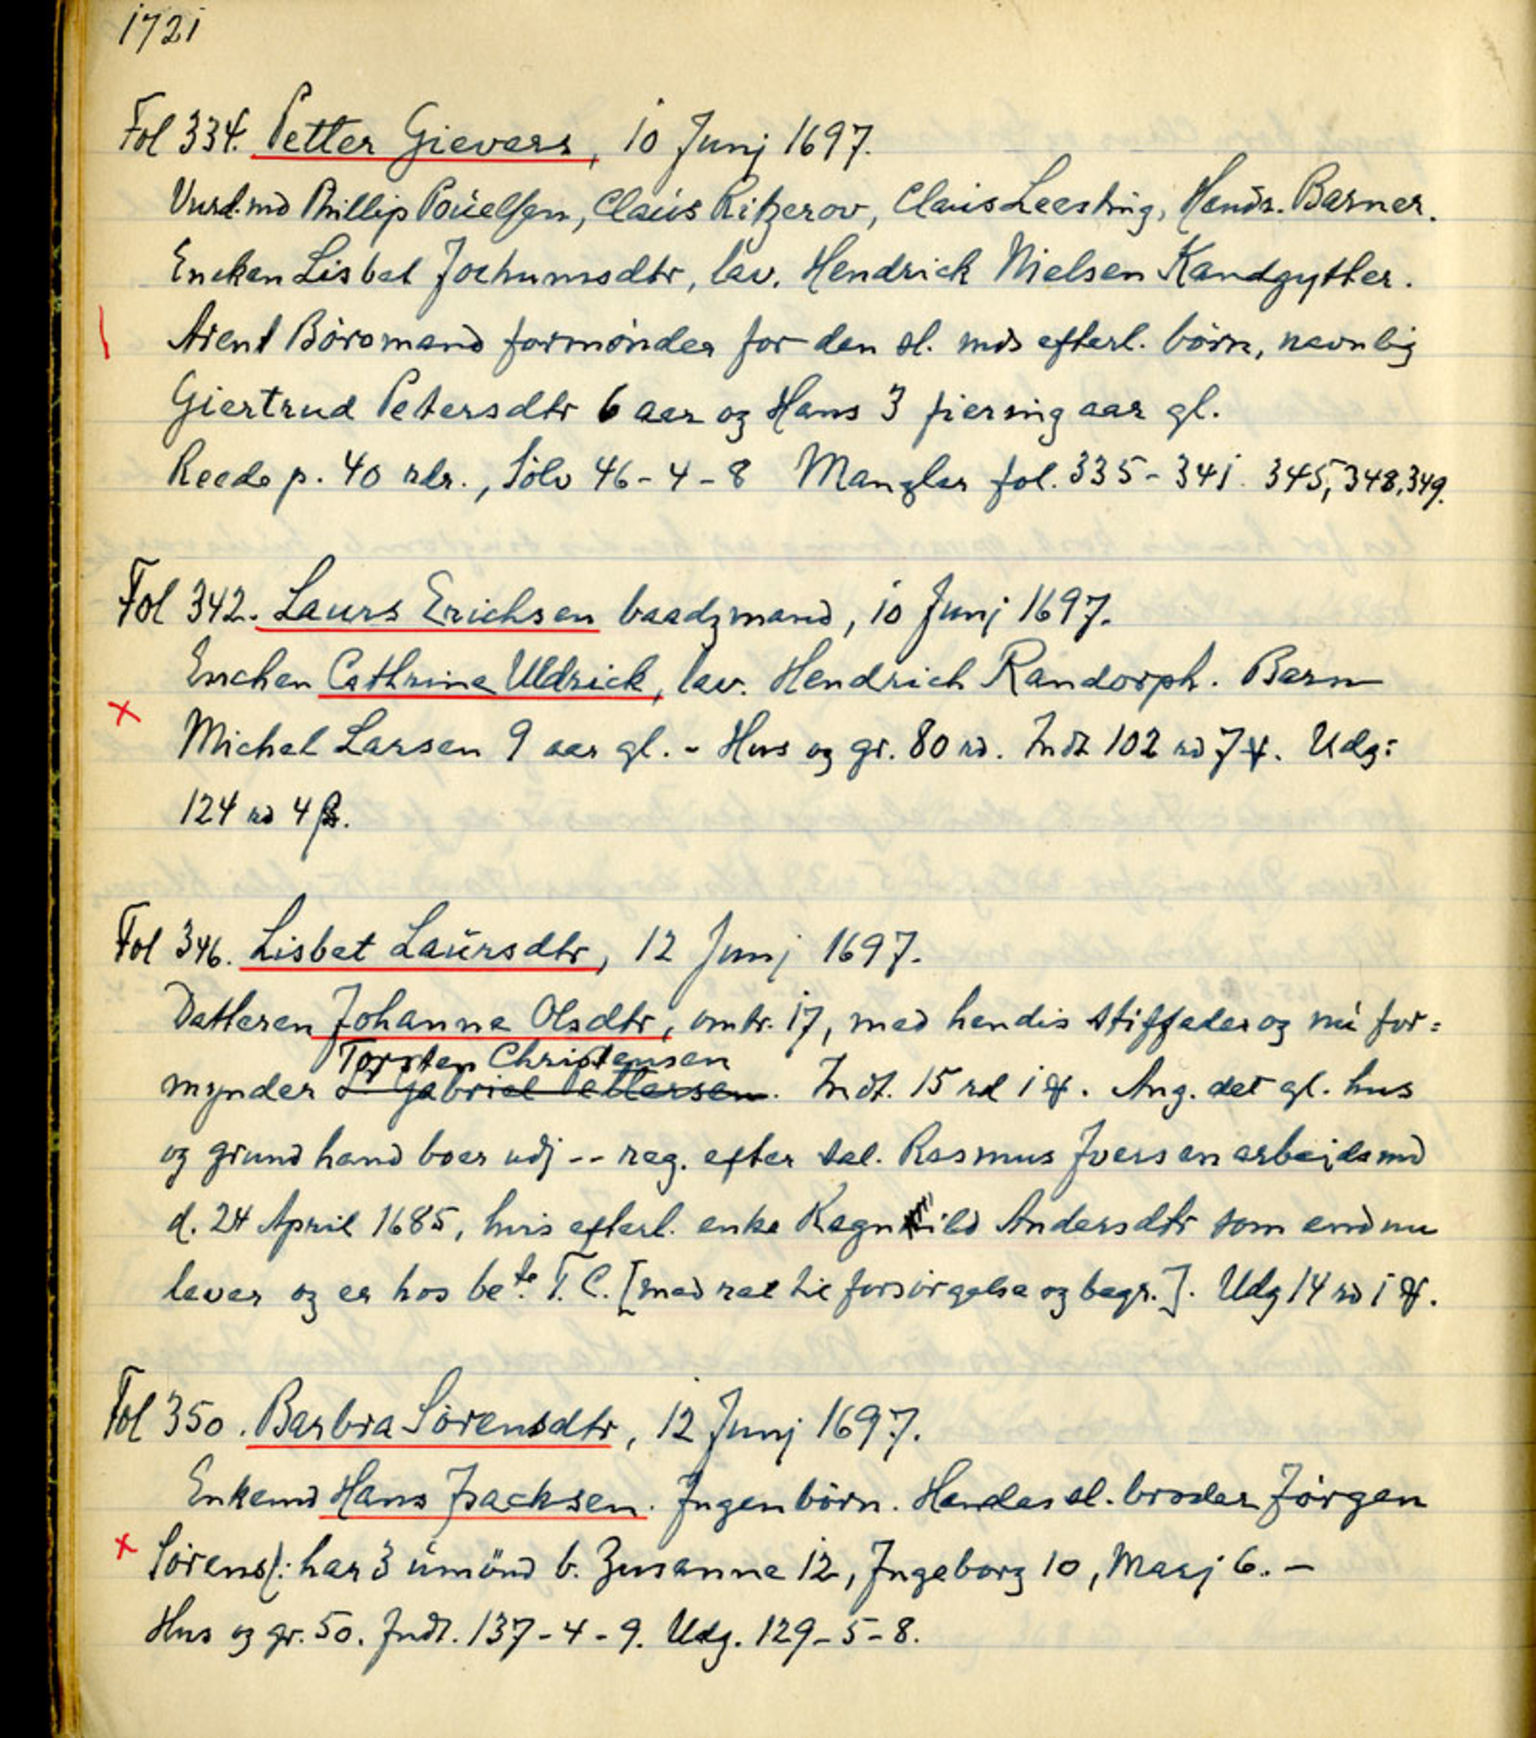 1721
Fol 334. Petter Gievers, 10 Junj 1697.
Vurd.md Phillip Poüelsen, Claüs Ritzerov, Claüs Leesting, Hendr. Barner.
Encken Lisbet Jochumsdtr, lav. Hendrick Nielsen Kandgytter.
Arent Böromand formönder for den sl. mds efterl. börn, nevnlig
Giertrud Petersdtr 6 aar og Hans 3 fiering aar gl.
Reede p. 40 rdr., Sölv 46-4-8 Mangler fol. 335-341. 345, 348, 349.
Fol 342. Laurs Erichsen baadzmand, 10 Junj 1697.
Enchen Cathrine Uldrick, lav. Hendrich Randorph. Barn
Michel Larsen 9 aar gl. - Hus og gr. 80 rd. Indt 102 rd 7 ꝟ. Udg:
124 rd 4 β.
Fol 346. Lisbet Laürsdtr, 12 Junj 1697.
Datteren Johanne Olsdtr, omtr. 17, med hendis stiffader og nü for=
Torsten Christensen
mynder L. Gabriel Pettersen. Indt. 15 rd 1 ꝟ. Ang. det gl. hus
og grund hand boer udj -- reg. efter sal. Rasmus Jversen arbejdsmd
d. 24 April 1685, hvis efterl. enke Ragnild Andersdtr som endnu
lever og er hos bete. T. C. [med ret til forsörgelse og begr.]. Udg 14 rd 1 ꝟ.
Fol 350. Barbra Sörensdtr, 12 Junj 1697.
Enkemd Hans Jsacksen. Jngen börn. Hendes sl. broder Jörgen
Sörens/: har 3 ümönd b. Zusanne 12, Jngeborg 10, Marj 6. -
Hus og gr. 50. Jndt. 137-4-9. Udg. 129-5-8.